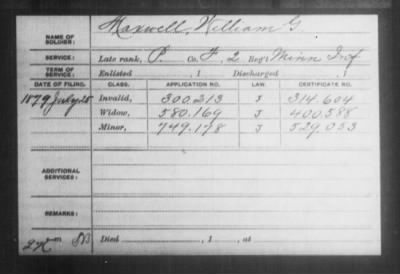 Maxwell, William G.
NAME OF SOLDIER:
SERVICE: Late rank, P. Co. F, 2 Reg't Minn Inf
TERM OF SERVICE: Enlisted , 1 Discharged , 1
DATE OF FILING. CLASS. APPLICATION NO. LAW. CERTIFICATE NO.
1879 July 25 Invalid, 300.213 J 314.604
Widow, 580.169 J 400.588
Minor, 749.178 J 529.053
ADDITIONAL SERVICES:
REMARKS:
Died , 1 , at